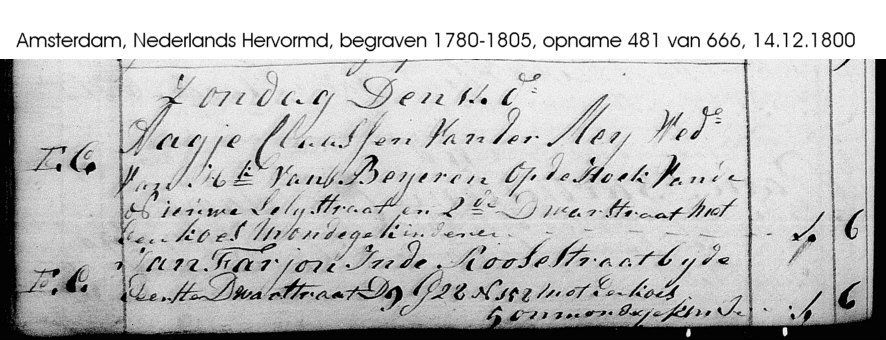 Amsterdam, Nederlands Hervormd, begraven 1780-1805, opname 481 van 666, 14.12.1800
Zondag Den 14 d:
Aagje Claassen Vander Mey Wed:
E.C.
Van Beyeren Op de Hoek Van de
Nieuwe Lelystraat en 2de Dwarstraat met
een koets kinderen 4 6
Jan Farjon Inde Roosestraat by de
E.C.
Eerste Dwarstraat D 9 G 28 N met een koets
onmondige 4 6